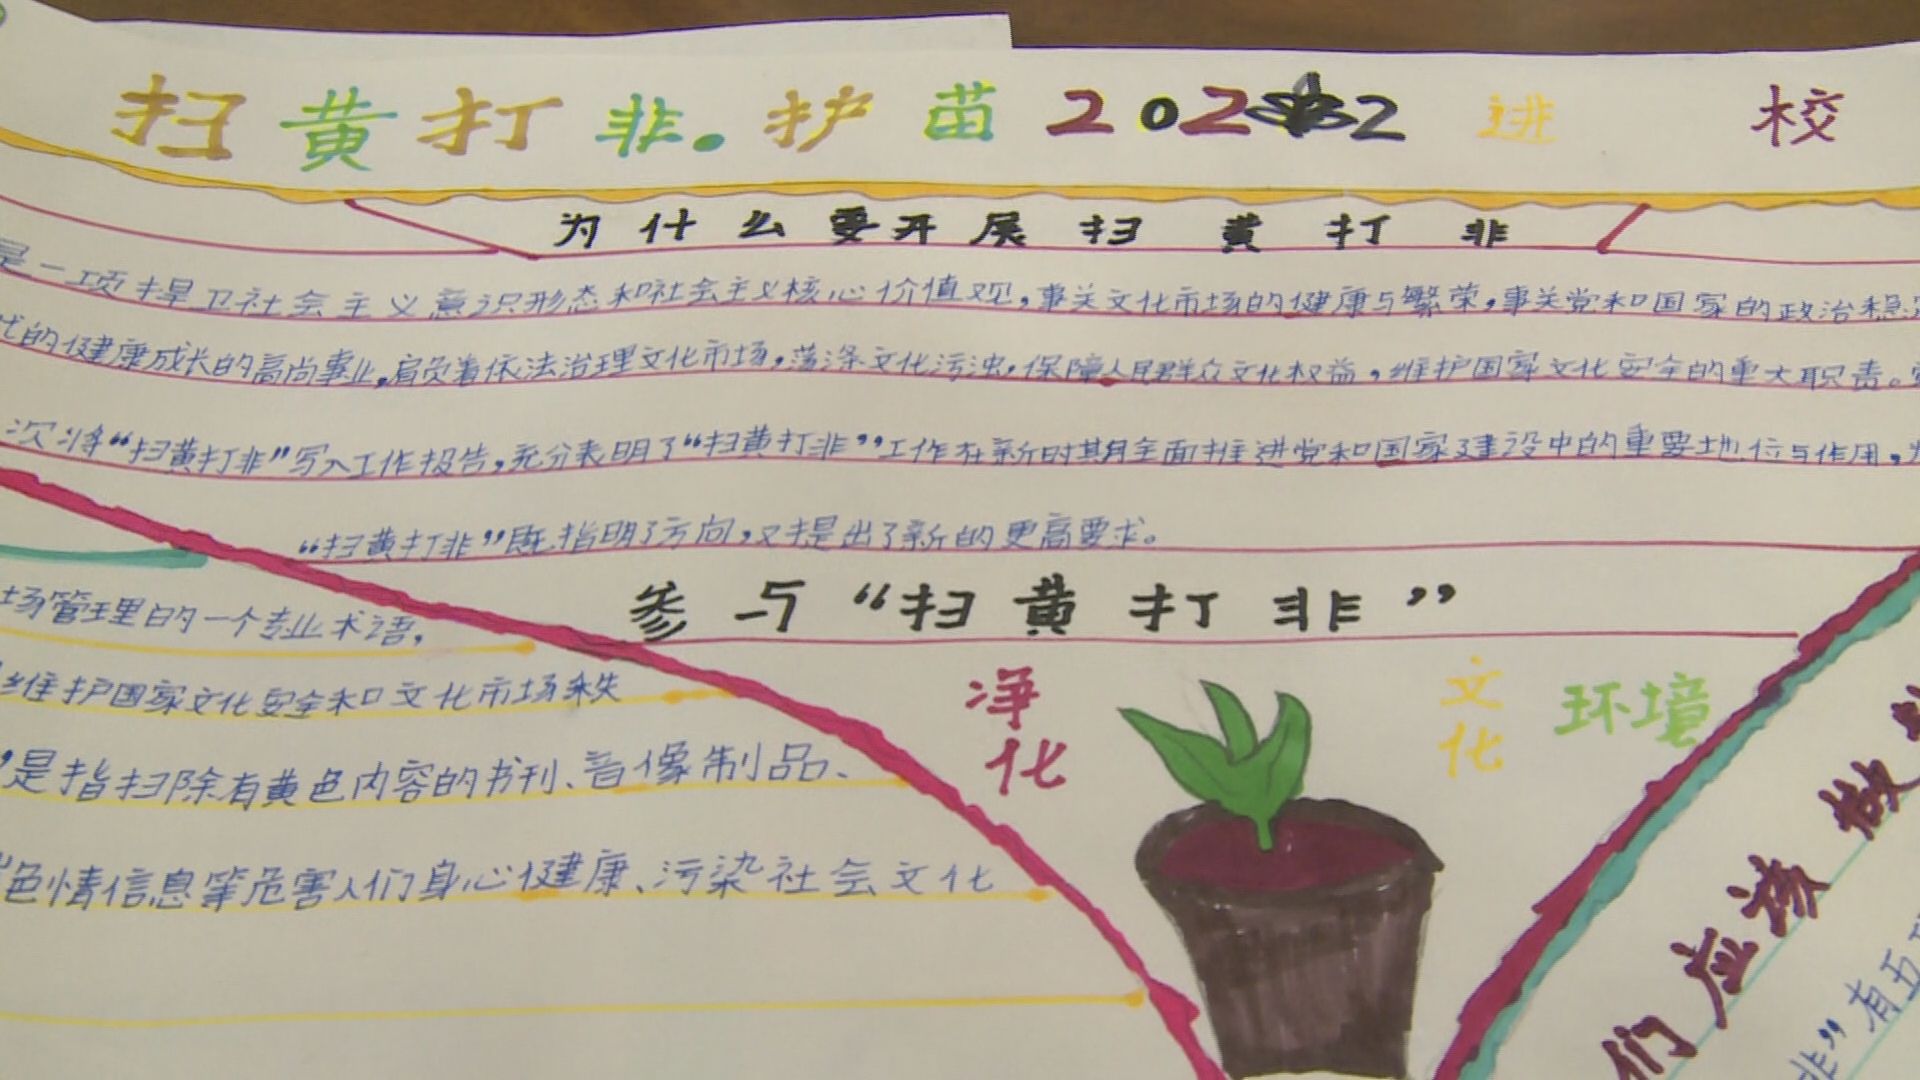 扫黄打非·护苗2022进校
为什么要开展扫黄打非
是一项捍卫社会主义意识形态和社会主义核心价值观,事关文化市场的健康与繁荣,事关党和国家的政治稳定
代的健康成长的高尚事业,肩负着依法治理文化市场,荡涤文化污浊,保障人民群众文化权益,维护国家文化安全的重大职责。
次将“扫黄打非”写入工作报告,充分表明了“扫黄打非”工作在新时期全面推进党和国家建设中的重要地位与作用,
“扫黄打非”既指明了方向,又提出了新的更高要求。
参与“扫黄打非”
净化
文化
环境
场管理里的一个专业术语,
维护国家文化安全和文化市场秩
”是指扫除有黄色内容的书刊、音像制品、
色情信息等危害人们身心健康、污染社会文化
们应该做
非”有五